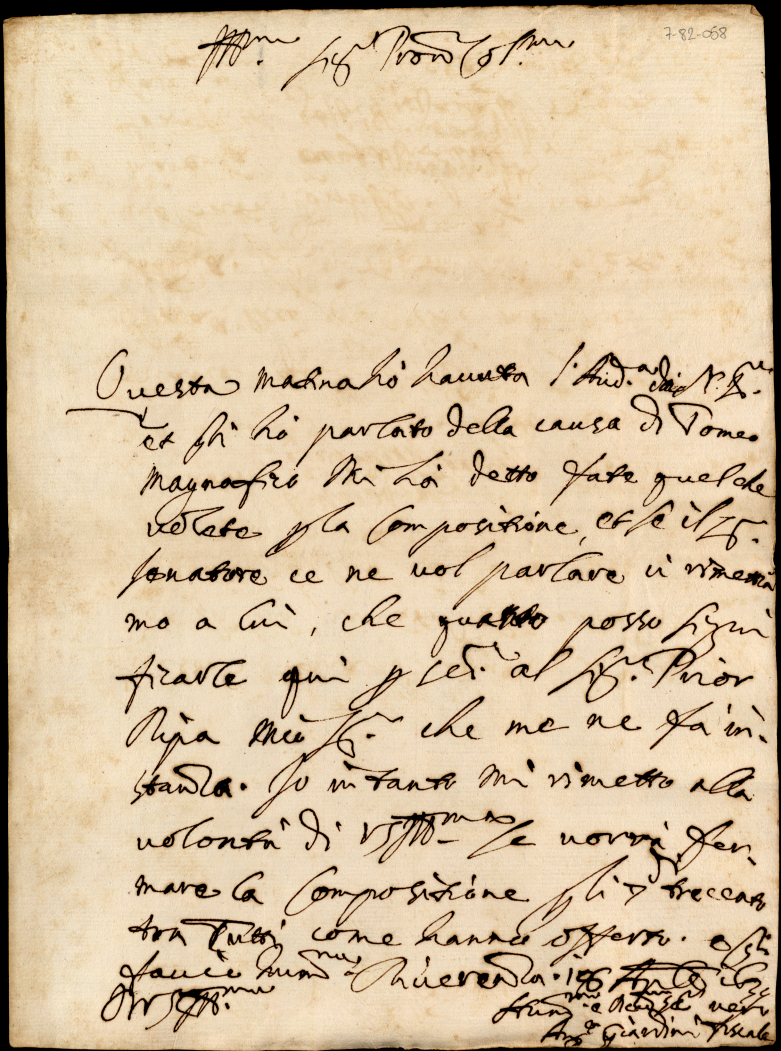 7-82-068
Ill.mo Sig.r Pron Col.mo
Questa matina hò havuta l'Aud.a da N. S.re
et gli hò parlato della causa di Tomeo
Magnafico Mi hà detto fate quel che
volete p la Compositione, et se il S.r
senatore ce ne vol parlare ci rimettia
mo a lui, che quanto posso signi
ficarle qui p ser. al Sig.r Prior
Ripa Mio S.r che me ne fà in-
stanza. Io in tanto mi rimetto alla
volontà di VS Ill.ma se vorrà fer-
mare la Compositione p li trecento
tra Tutti come hanno offerto. e gli
faccio hum.ma Riverenza.
Di VS Ill.ma
Giardini fiscale